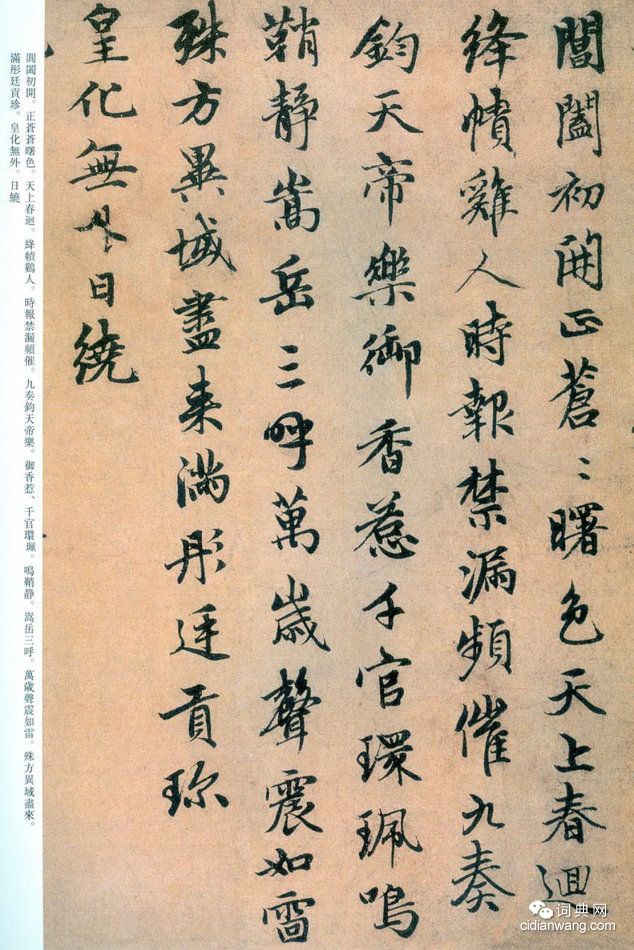 閶闔初開正蒼〻曙色天上春迴
絳幘雞人時報禁漏頻催九奏
鈞天帝樂御香惹千官環珮鳴
鞘靜嵩岳三呼萬歲聲震如雷
殊方異域盡来滿彤廷貢珎
皇化無外日繞
閶闔初開。正蒼蒼曙色。天上春迴。絳幘鷄人。時報禁漏頻催。九奏鈞天帝樂。御香惹、千官環珮。鳴鞘静。嵩岳三呼。萬歲聲震如雷。殊方異域盡來。
滿彤廷貢珍。皇化無外。日繞
词典网
cidianwang.com